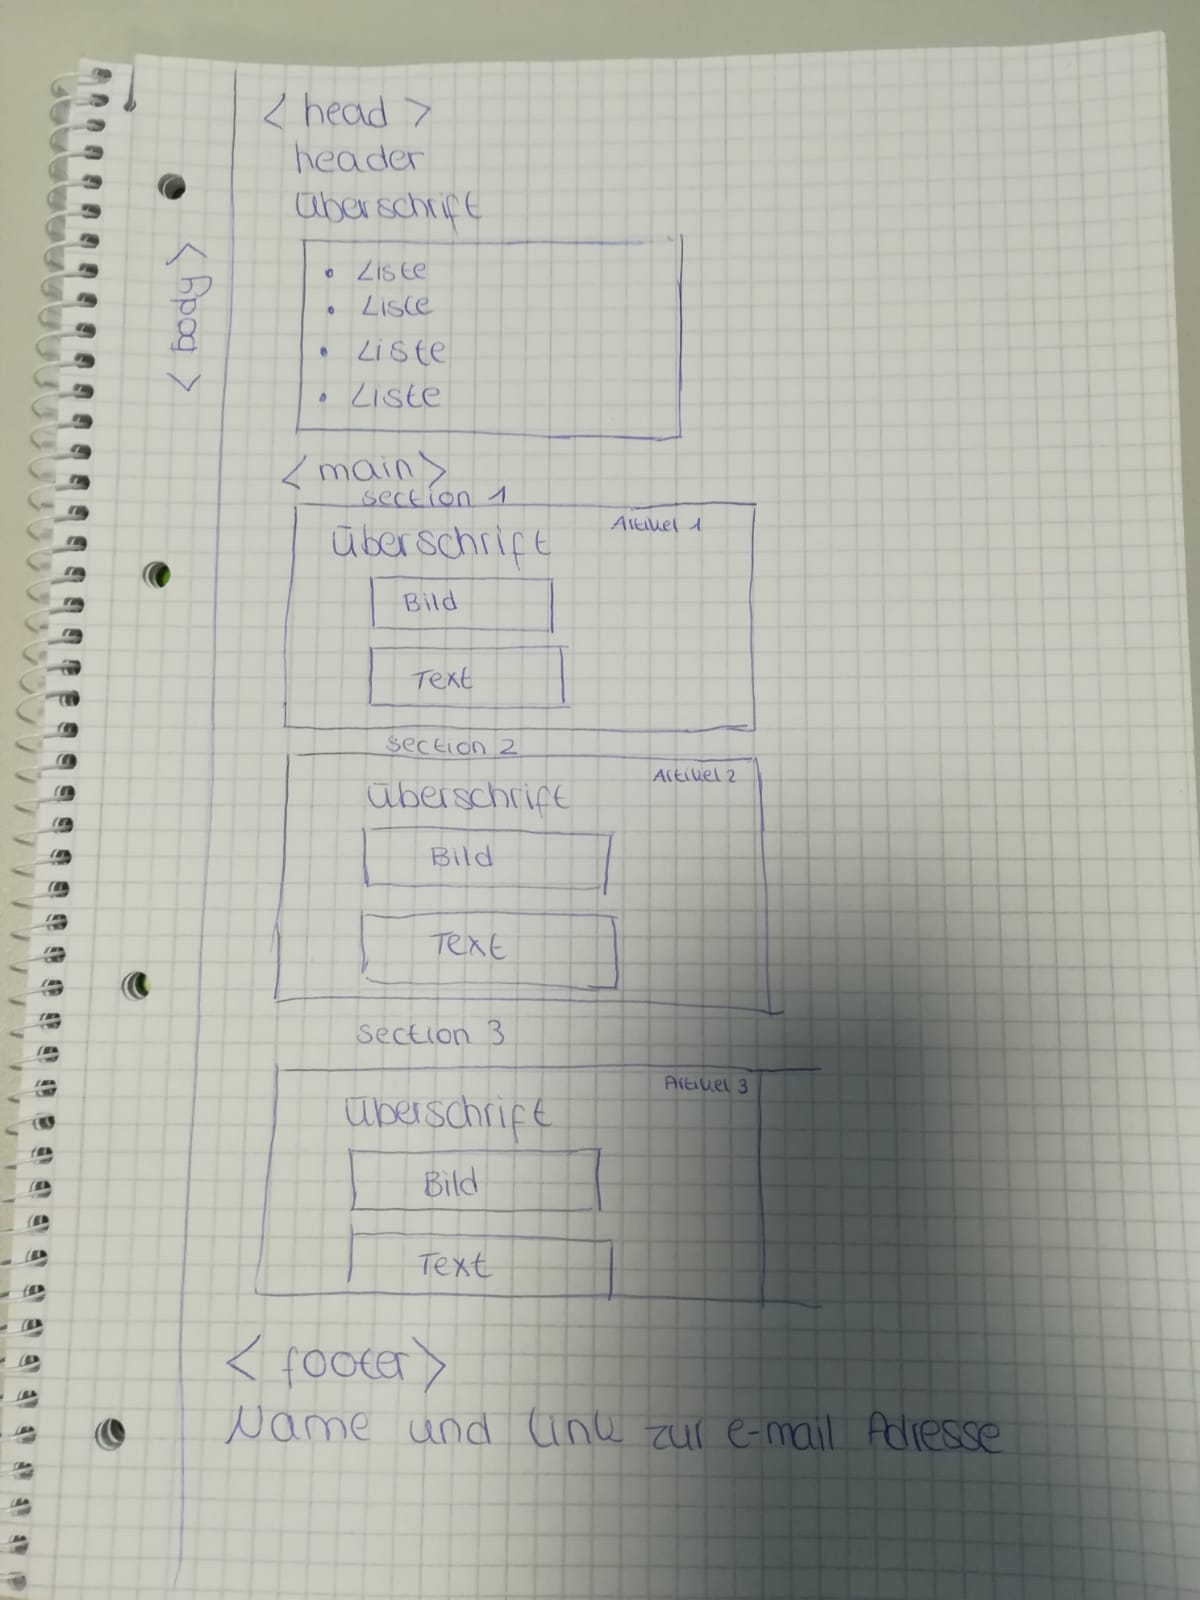 < head >
header
Überschrift
<body>
• Liste
• Liste
• Liste
• Liste
<main>
section 1
Artikel 1
Überschrift
Bild
Text
section 2
Artikel 2
Überschrift
Bild
Text
section 3
Artikel 3
Überschrift
Bild
Text
<footer>
Name und Link zur e-mail Adresse